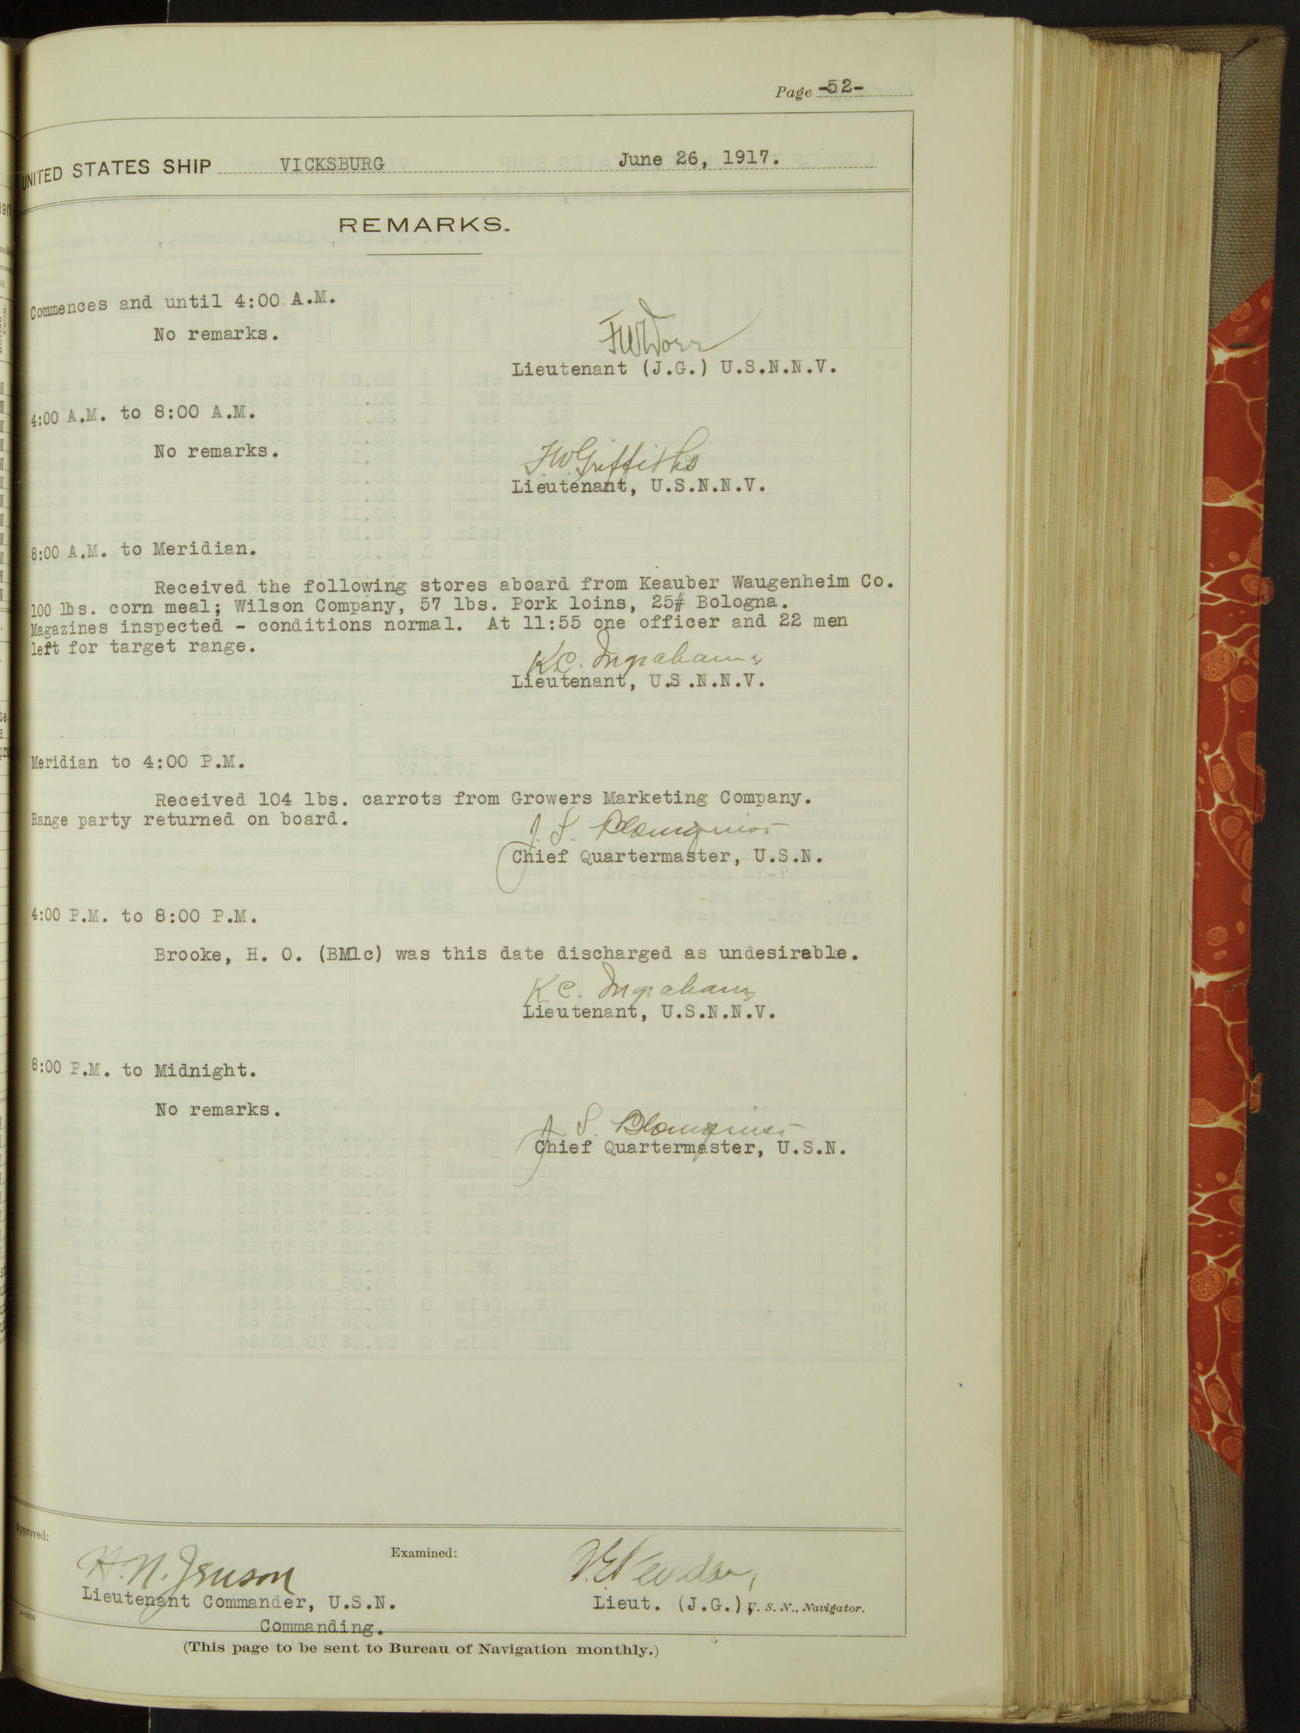 Page -52-
UNITED STATES SHIP VICKSBURG June 26, 1917.
REMARKS.
Commences and until 4:00 A.M.
No remarks.
Lieutenant (J.G.) U.S.N.N.V.
4:00 A.M. to 8:00 A.M.
No remarks.
F.W. Griffiths
Lieutenant, U.S.N.N.V.
8:00 A.M. to Meridian.
Received the following stores aboard from Keauber Waugenheim Co.
100 lbs. corn meal; Wilson Company, 57 lbs. Pork loins, 25# Bologna.
Magazines inspected - conditions normal. At 11:55 one officer and 22 men
left for target range.
K.C. Ingraham
Lieutenant, U.S.N.N.V.
Meridian to 4:00 P.M.
Received 104 lbs. carrots from Growers Marketing Company.
Range party returned on board.
J. S. Blomquist
Chief Quartermaster, U.S.N.
4:00 P.M. to 8:00 P.M.
Brooke, H. O. (BM1c) was this date discharged as undesirable.
K.C. Ingraham
Lieutenant, U.S.N.N.V.
8:00 P.M. to Midnight.
No remarks.
J. S. Blomquist
Chief Quartermaster, U.S.N.
Approved:
Examined:
H. N. Jenson
Lieutenant Commander, U.S.N.
Commanding.
Lieut. (J.G.), U. S. N., Navigator.
(This page to be sent to Bureau of Navigation monthly.)